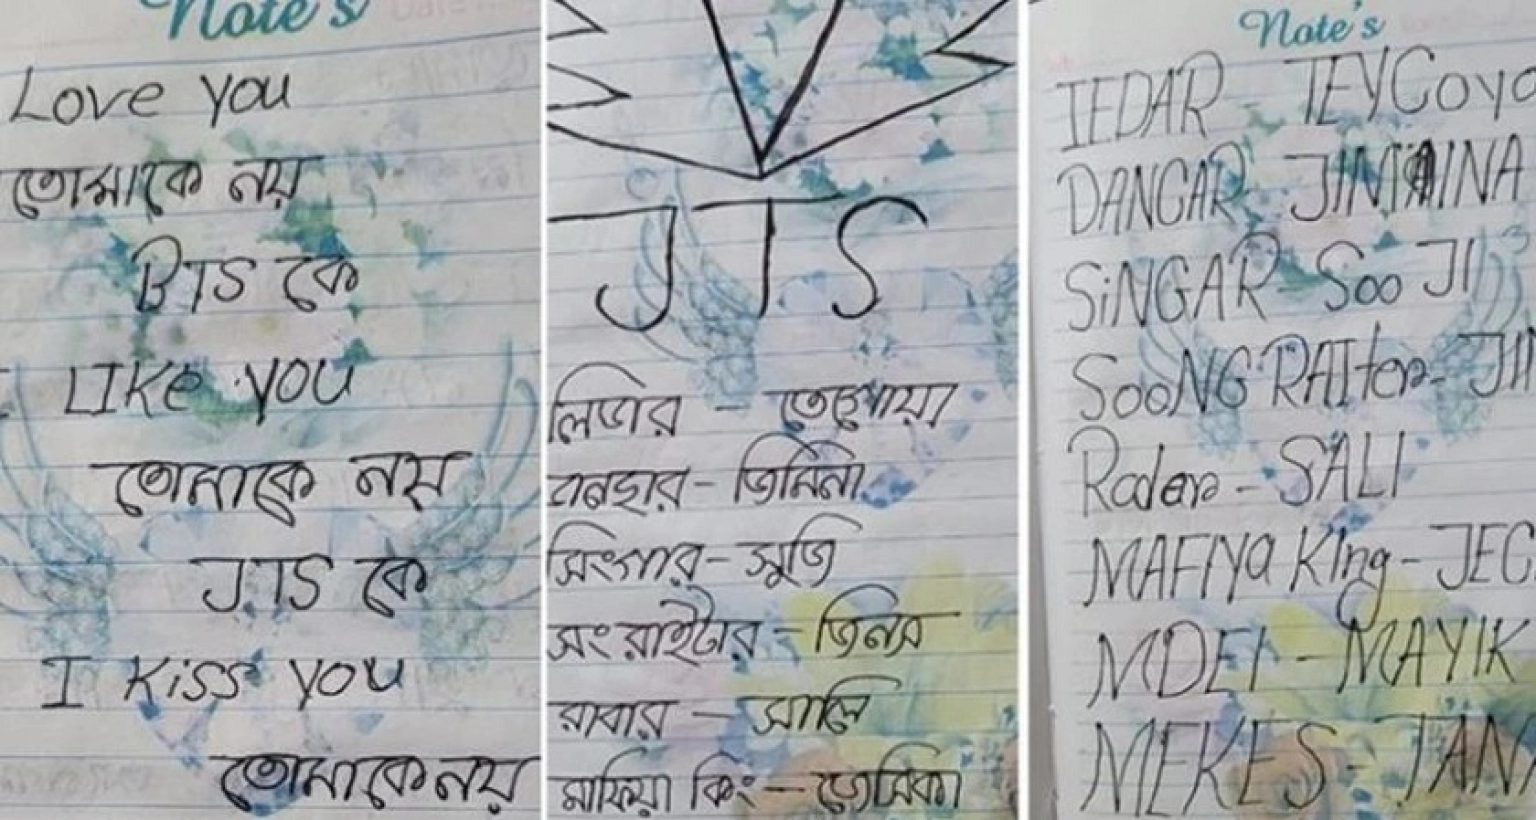 Note's
Love you
তোমাকে নয়
BTS কে
LIKe you
তোমাকে নয়
JTS কে
I Kiss you
তোমাকে নয়
JTS
লিডার –
– জিমিনা
সিংগার – সুজি
সংরাইটার –
রাবার – সালি
মাফিয়া কিং – জেসিকা
Note's
IEDAR TEYCoyo
DANCAR JINMINA
SiNGAR Soo JI
SooNG RAITer - JIN
Rader - SALI
MAFIYa KIng - JEC
MDEI - MAYIK
MEKES - TAN